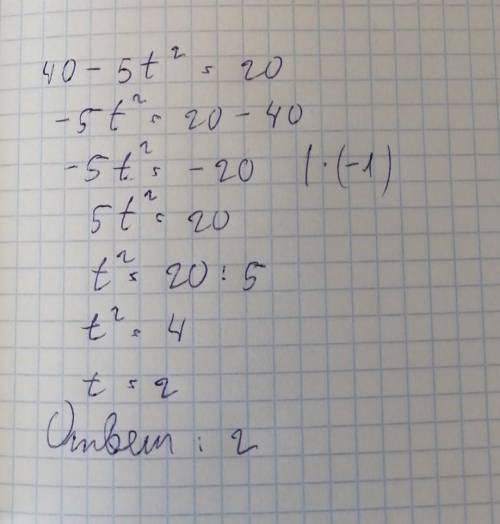 40 - 5t² = 20
-5t² = 20 - 40
-5t² = -20 | · (-1)
5t² = 20
t² = 20 : 5
t² = 4
t = 2
Ответ : 2